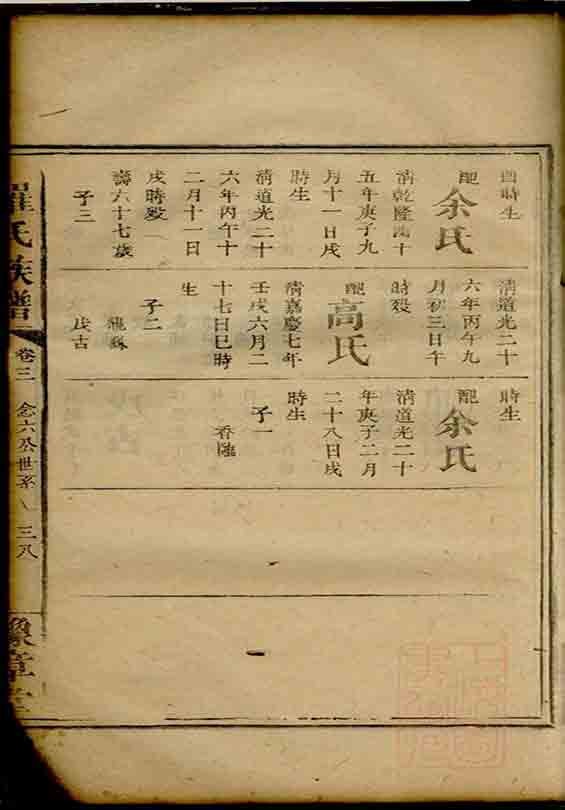 酉時生
配
余氏
清乾隆四十
五年庚子九
月十一日戌
時生
清道光二十
六年丙午十
二月十一日
戌時殁
壽六十七歲
子三
清道光二十
六年丙午九
月初三日午
時殁
配
高氏
清嘉慶七年
壬戌六月二
十七日巳時
生
子二
龍
戊古
時生
配
余氏
清道光二十
年庚子二月
二十八日戌
時生
子一
香
羅氏族譜
卷三
念六公世系
三八
豫章堂